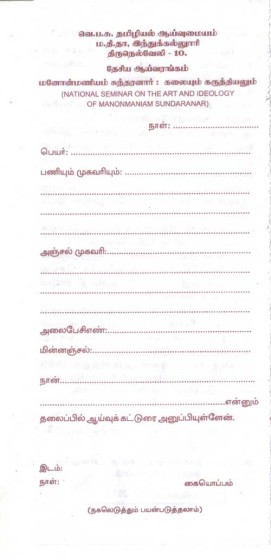 வெ.ப.சு. தமிழியல் ஆய்வுமையம்
ம.தி.தா. இந்துக்கல்லூரி
திருநெல்வேலி - 10.
தேசிய ஆய்வரங்கம்
மனோன்மணியம் சுந்தரனார் : கலையும் கருத்தியலும்
(NATIONAL SEMINAR ON THE ART AND IDEOLOGY
OF MANONMANIAM SUNDARANAR)
நாள்: ................................
பெயர்: ................................
பணியும் முகவரியும்: ................................
அஞ்சல் முகவரி:................................
அலைபேசிஎண்:................................
மின்னஞ்சல்:................................
நான்................................
................................என்னும்
தலைப்பில் ஆய்வுக் கட்டுரை அனுப்பியுள்ளேன்.
இடம்:
நாள்: கையொப்பம்
(நகலெடுத்தும் பயன்படுத்தலாம்)